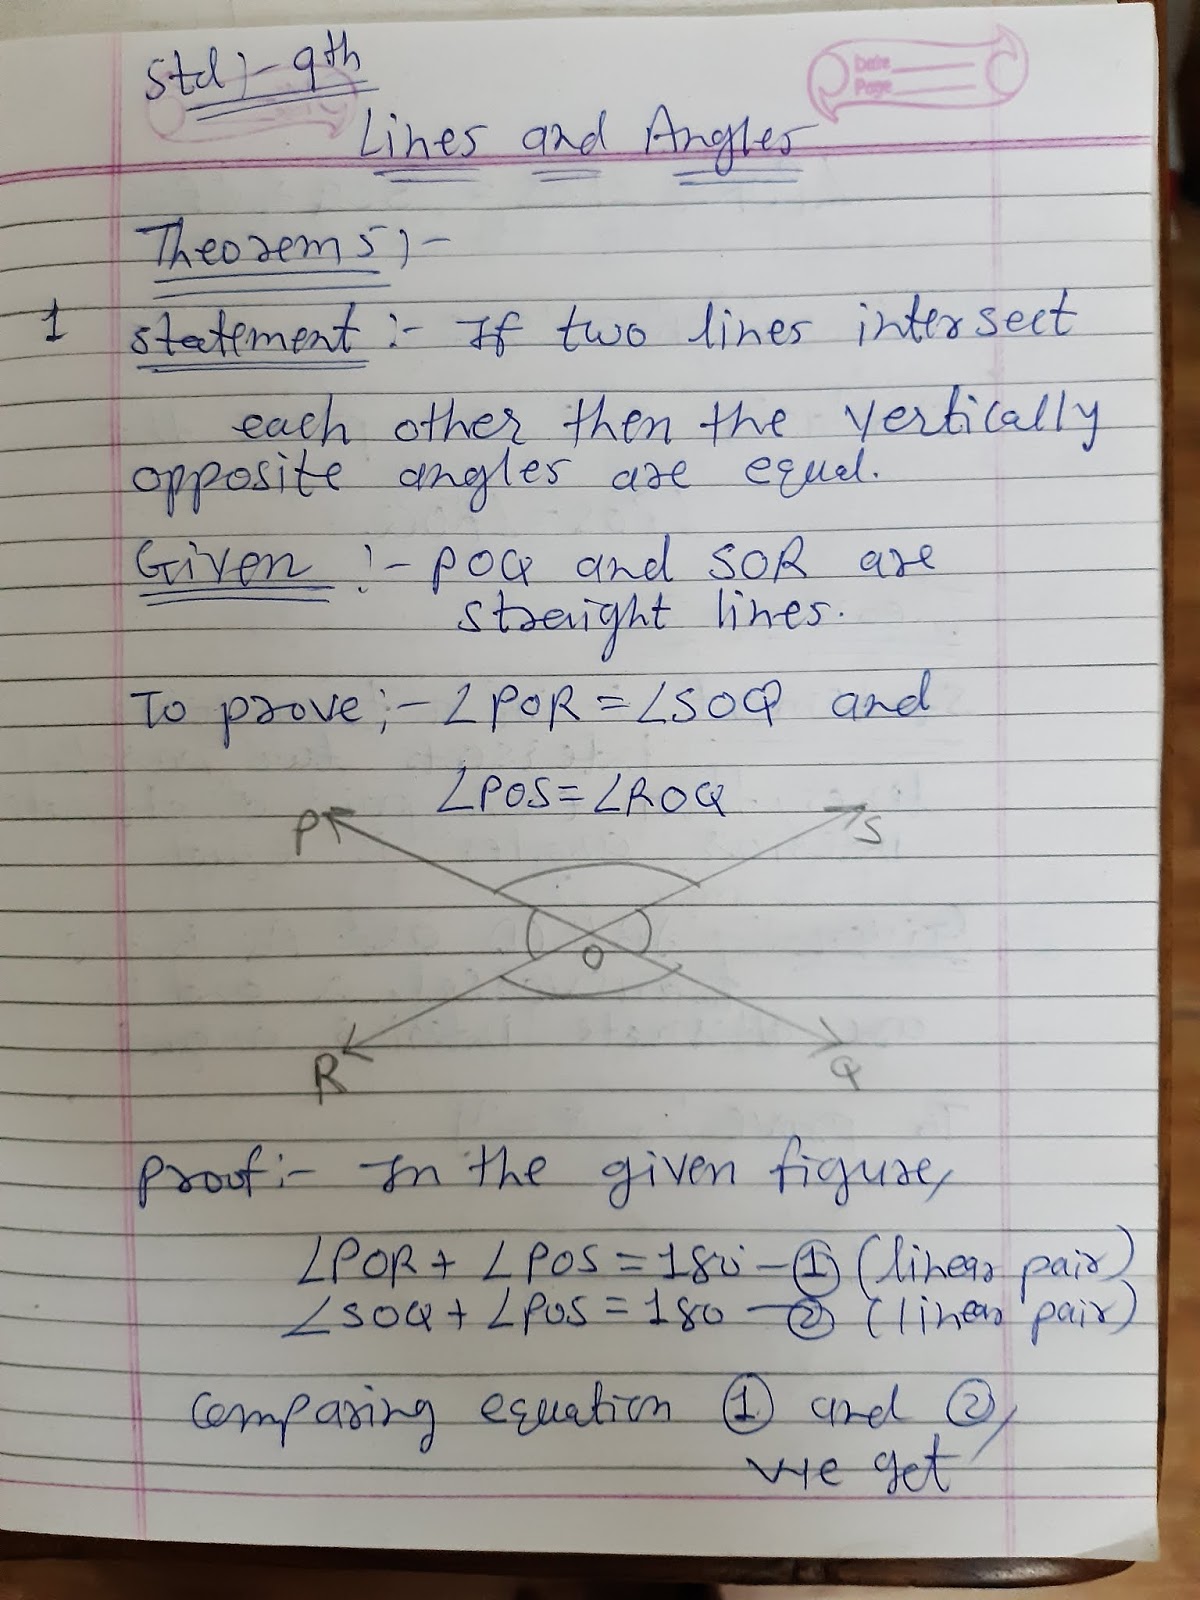 Std :- 9th
Date
Page
Lines and Angles
Theorems :-
1 Statement :- If two lines intersect
each other then the vertically
opposite angles are equal.
Given :- POQ and SOR are
straight lines.
To prove :- ∠POR = ∠SOQ and
∠POS = ∠ROQ
P S
O
R Q
Proof :- In the given figure,
∠POR + ∠POS = 180° - ① (linear pair)
∠SOQ + ∠POS = 180 - ② (linear pair)
Comparing equation ① and ②,
we get